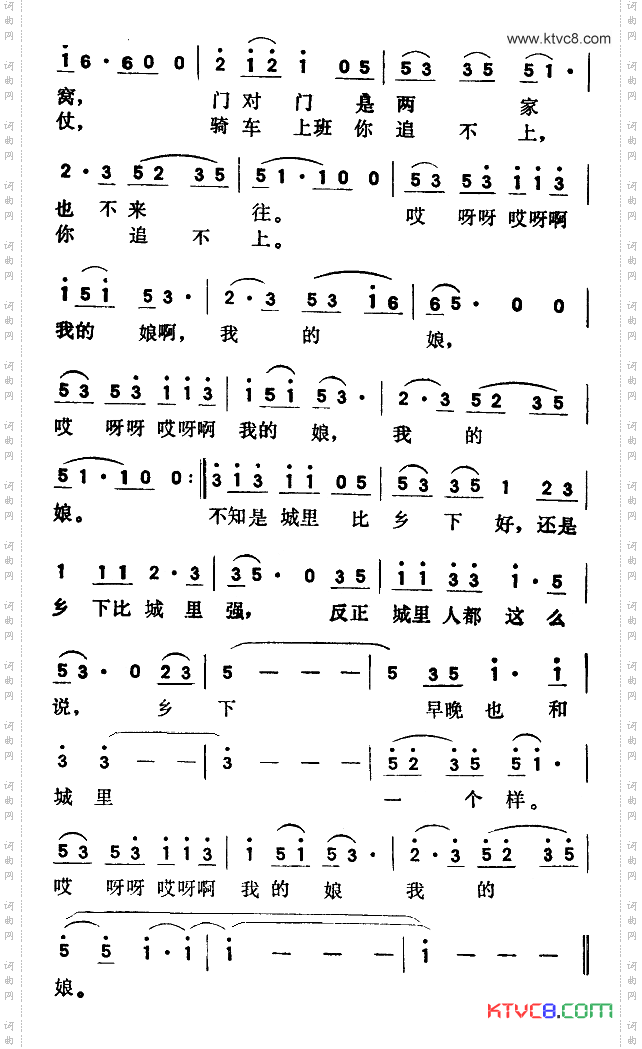 www.ktvc8.com
i6·600 2 i2 i 05 53 35 51·
窝， 门对 门 是两 家
仗， 骑车 上班 你 追 不 上，
2·3 52 35 51·100 53 53 113
也 不来 往。 哎 呀呀 哎呀啊
你 追 不 上。
151 53· 2·3 53 i6 65· 0 0
我的 娘啊， 我 的 娘，
53 53 113 151 53· 2·3 52 35
哎 呀呀 哎呀啊 我的 娘， 我 的
51·100: 313 11 05 53 35 1 23
娘。 不知是 城里 比 乡 下 好，还是
1 11 2·3 35·035 11 33 1·5
乡 下比 城 里 强， 反正 城里 人都 这 么
53·0 23 5 — — — 5 35 1·1
说， 乡 下 早晚 也 和
3 3 — — 3 — — — 52 35 51·
城 里 一 个 样。
53 53 113 1 51 53· 2·3 52 35
哎 呀呀 哎呀啊 我 的 娘 我 的
5 5 1·1 1 — — — 1 — — —
娘。
KTVC8.COM
词曲网 词曲网 词曲网 词曲网 词曲网 词曲网 词曲网 词曲网 词曲网 词曲网 词曲网